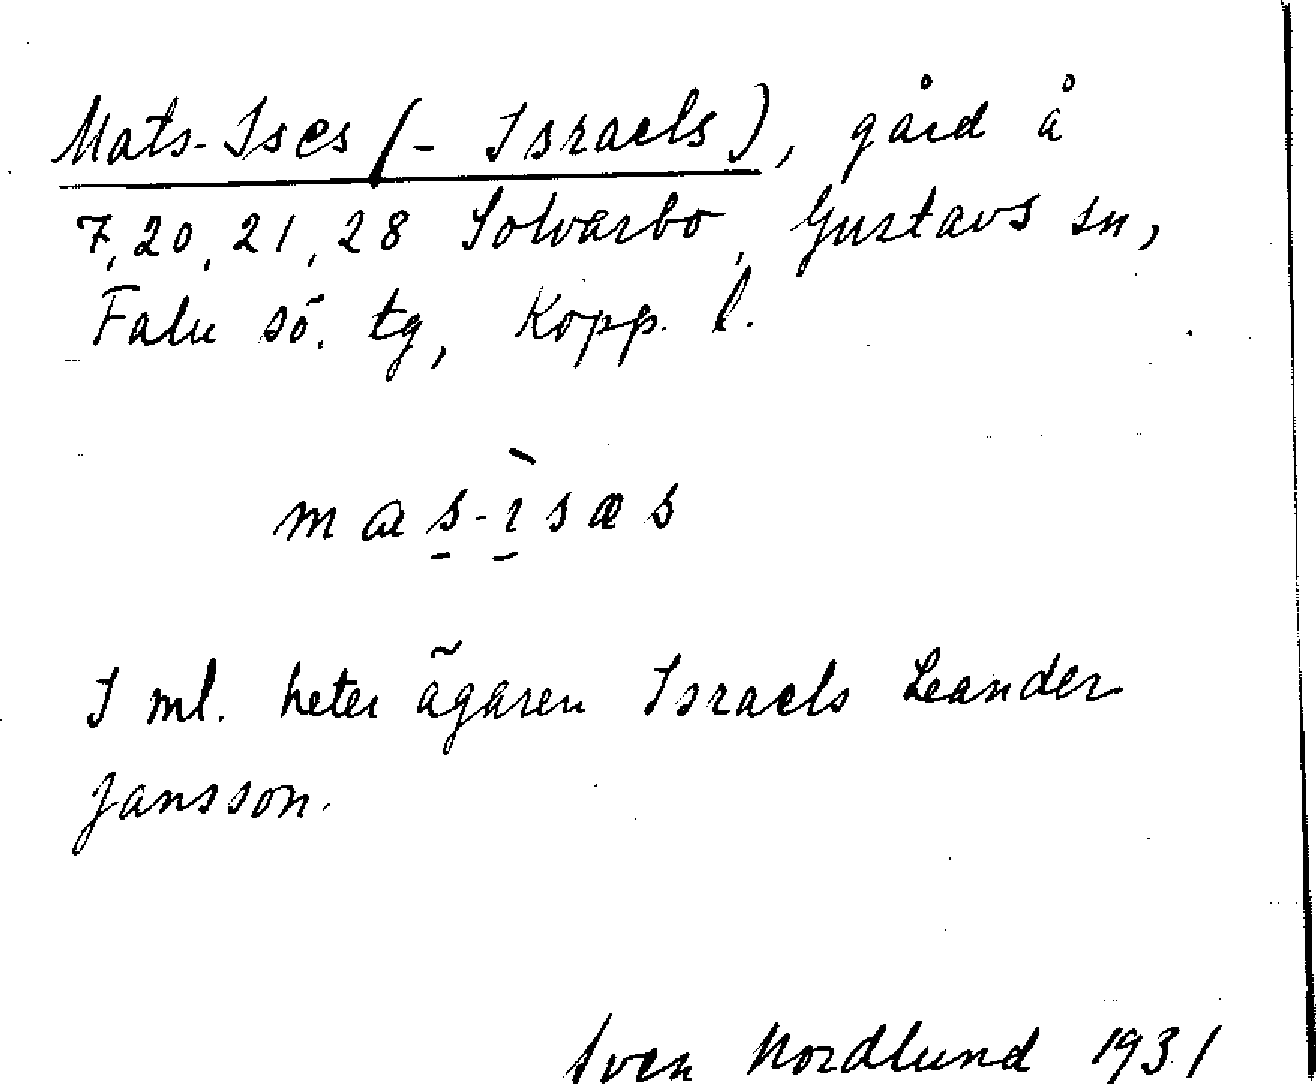 Mats-Ises (- Israels), gård å
7, 20, 21, 28 Solvarbo, Gustavs sn,
Falu sö. tg, Kopp. l.
mas-ìsæs
I ml. heter ägaren Israels Leander
Jansson.
Sven Nordlund 1931